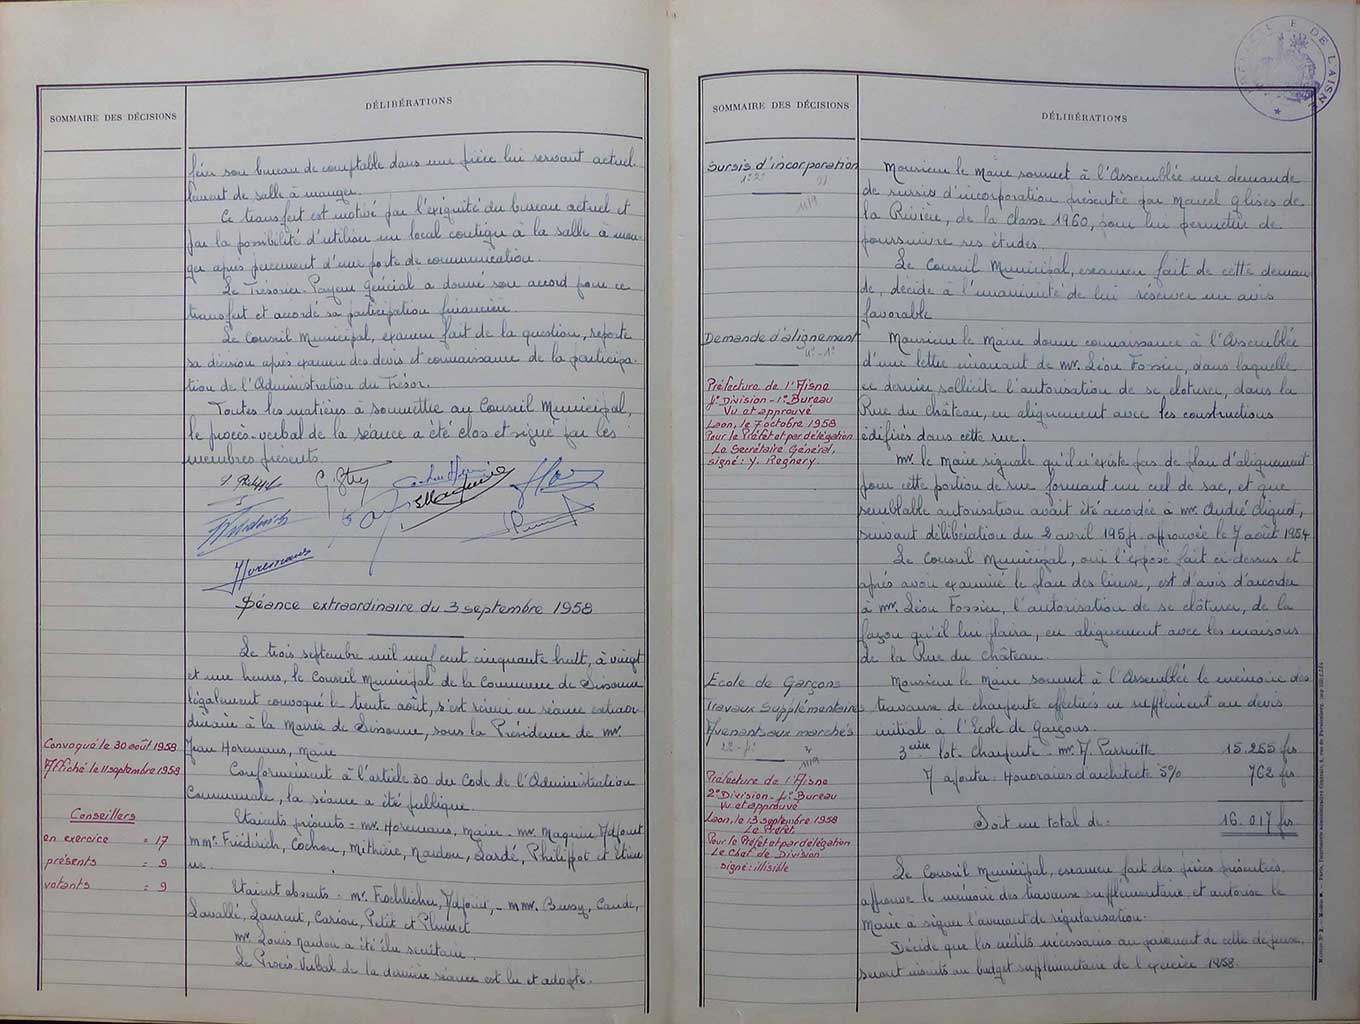 SOMMAIRE DES DÉCISIONS
DÉLIBÉRATIONS
férer son bureau de comptable dans une pièce lui servant actuel
lement de salle à manger.
Ce transfert est motivé par l'exiguité du bureau actuel et
par la possibilité d'utiliser un local contigu à la salle à man-
ger après percement d'une porte de communication.
Le Trésorier-Payeur Général a donné son accord pour ce
transfert et accordé sa participation financière.
Le Conseil Municipal, examen fait de la question, reporte
sa décision après examen des devis et connaissance de la participa-
tion de l'Administration du Trésor.
Toutes les matières à soumettre au Conseil Municipal,
le procès-verbal de la séance a été clos et signé par les
membres présents.
Friedrich
Horemans
Séance extraordinaire du 3 septembre 1958
Le trois septembre mil neuf cent cinquante huit, à vingt
et une heures, le Conseil Municipal de la Commune de Sissonne
légalement convoqué le trente août, s'est réuni en séance extraor
dinaire à la Mairie de Sissonne, sous la Présidence de Mr.
Jean Horemans, Maire
Conformément à l'article 30 du Code de l'Administration
Communale, la séance a été publique.
Etaient présents = Mr. Horemans, Maire - Mr. Maquin Adjoint
MMrs Friedrich, Cochon, Mithière, Nardou, Lardé, Philippot et Etien
ne.
Etaient absents = Mr Adjoint, - MMr. Bussy, Caude,
Lavallé, Laurent, Cariou, Petit et Plumet
Mr Louis Nardou a été élu secrétaire.
Le Procès-Verbal de la dernière séance est lu et adopté.
Convoqué le 30 août 1958
Affiché le 11 septembre 1958
Conseillers
en exercice = 17
présents = 9
votants = 9
SOMMAIRE DES DÉCISIONS
DÉLIBÉRATIONS
DE L'AISNE
Sursis d'incorporation
11/9
Monsieur le Maire soumet à l'Assemblée une demande
de sursis d'incorporation présentée par Marcel Glises de
la Rivière, de la classe 1960, pour lui permettre de
poursuivre ses études.
Le Conseil Municipal, examen fait de cette deman
de, décide à l'unanimité de lui réserver un avis
favorable
Demande d'alignement
4e-1e
Préfecture de l'Aisne
4e Division - 1e Bureau
Vu et approuvé
Laon, le 7 octobre 1958
Pour le Préfet et par délégation
Le Secrétaire Général,
signé: Y. Regnery.
Monsieur le Maire donne connaissance à l'Assemblée
d'une lettre émanant de Mr. Léon Fossier, dans laquelle
ce dernier sollicite l'autorisation de se cloturer, dans la
Rue du Château, en alignement avec les constructions
édifiées dans cette rue.
Mr. le Maire signale qu'il n'existe pas de plan d'alignement
pour cette portion de rue formant un cul de sac, et que
semblable autorisation avait été accordée à Mr. André Cliquot,
suivant délibération du 2 avril 1954. approuvée le 7 août 1954
Le Conseil Municipal, ouï l'exposé fait ci-dessus et
après avoir examiné le plan des lieux, est d'avis d'accorder
à Mr. Léon Fossier, l'autorisation de se clôturer, de la
façon qu'il lui plaira, en alignement avec les maisons
de la Rue du Château.
École de Garçons
Travaux Supplémentaires
Avenants aux marchés
11/9
Préfecture de l'Aisne
2e Division - 4e Bureau
Vu et approuvé
Laon, le 13 septembre 1958
Le Préfet
Pour le Préfet et par délégation
Le Chef de Division
signé: illisible
Monsieur le Maire soumet à l'Assemblée le mémoire des
travaux de charpente effectués en supplément au devis
initial à l'École de Garçons.
3ème lot. Charpente - Mr. A. Parruitte 15.255 frs
A ajouter: Honoraires d'architecte 5% 762 frs
Soit un total de: 16.017 frs
Le Conseil Municipal, examen fait des pièces présentées,
approuve le mémoire des travaux supplémentaires et autorise le
Maire à signer l'avenant de régularisation.
Décide que les crédits nécessaires au paiement de cette dépense,
seront inscrits au budget supplémentaire de l'exercice 1958.